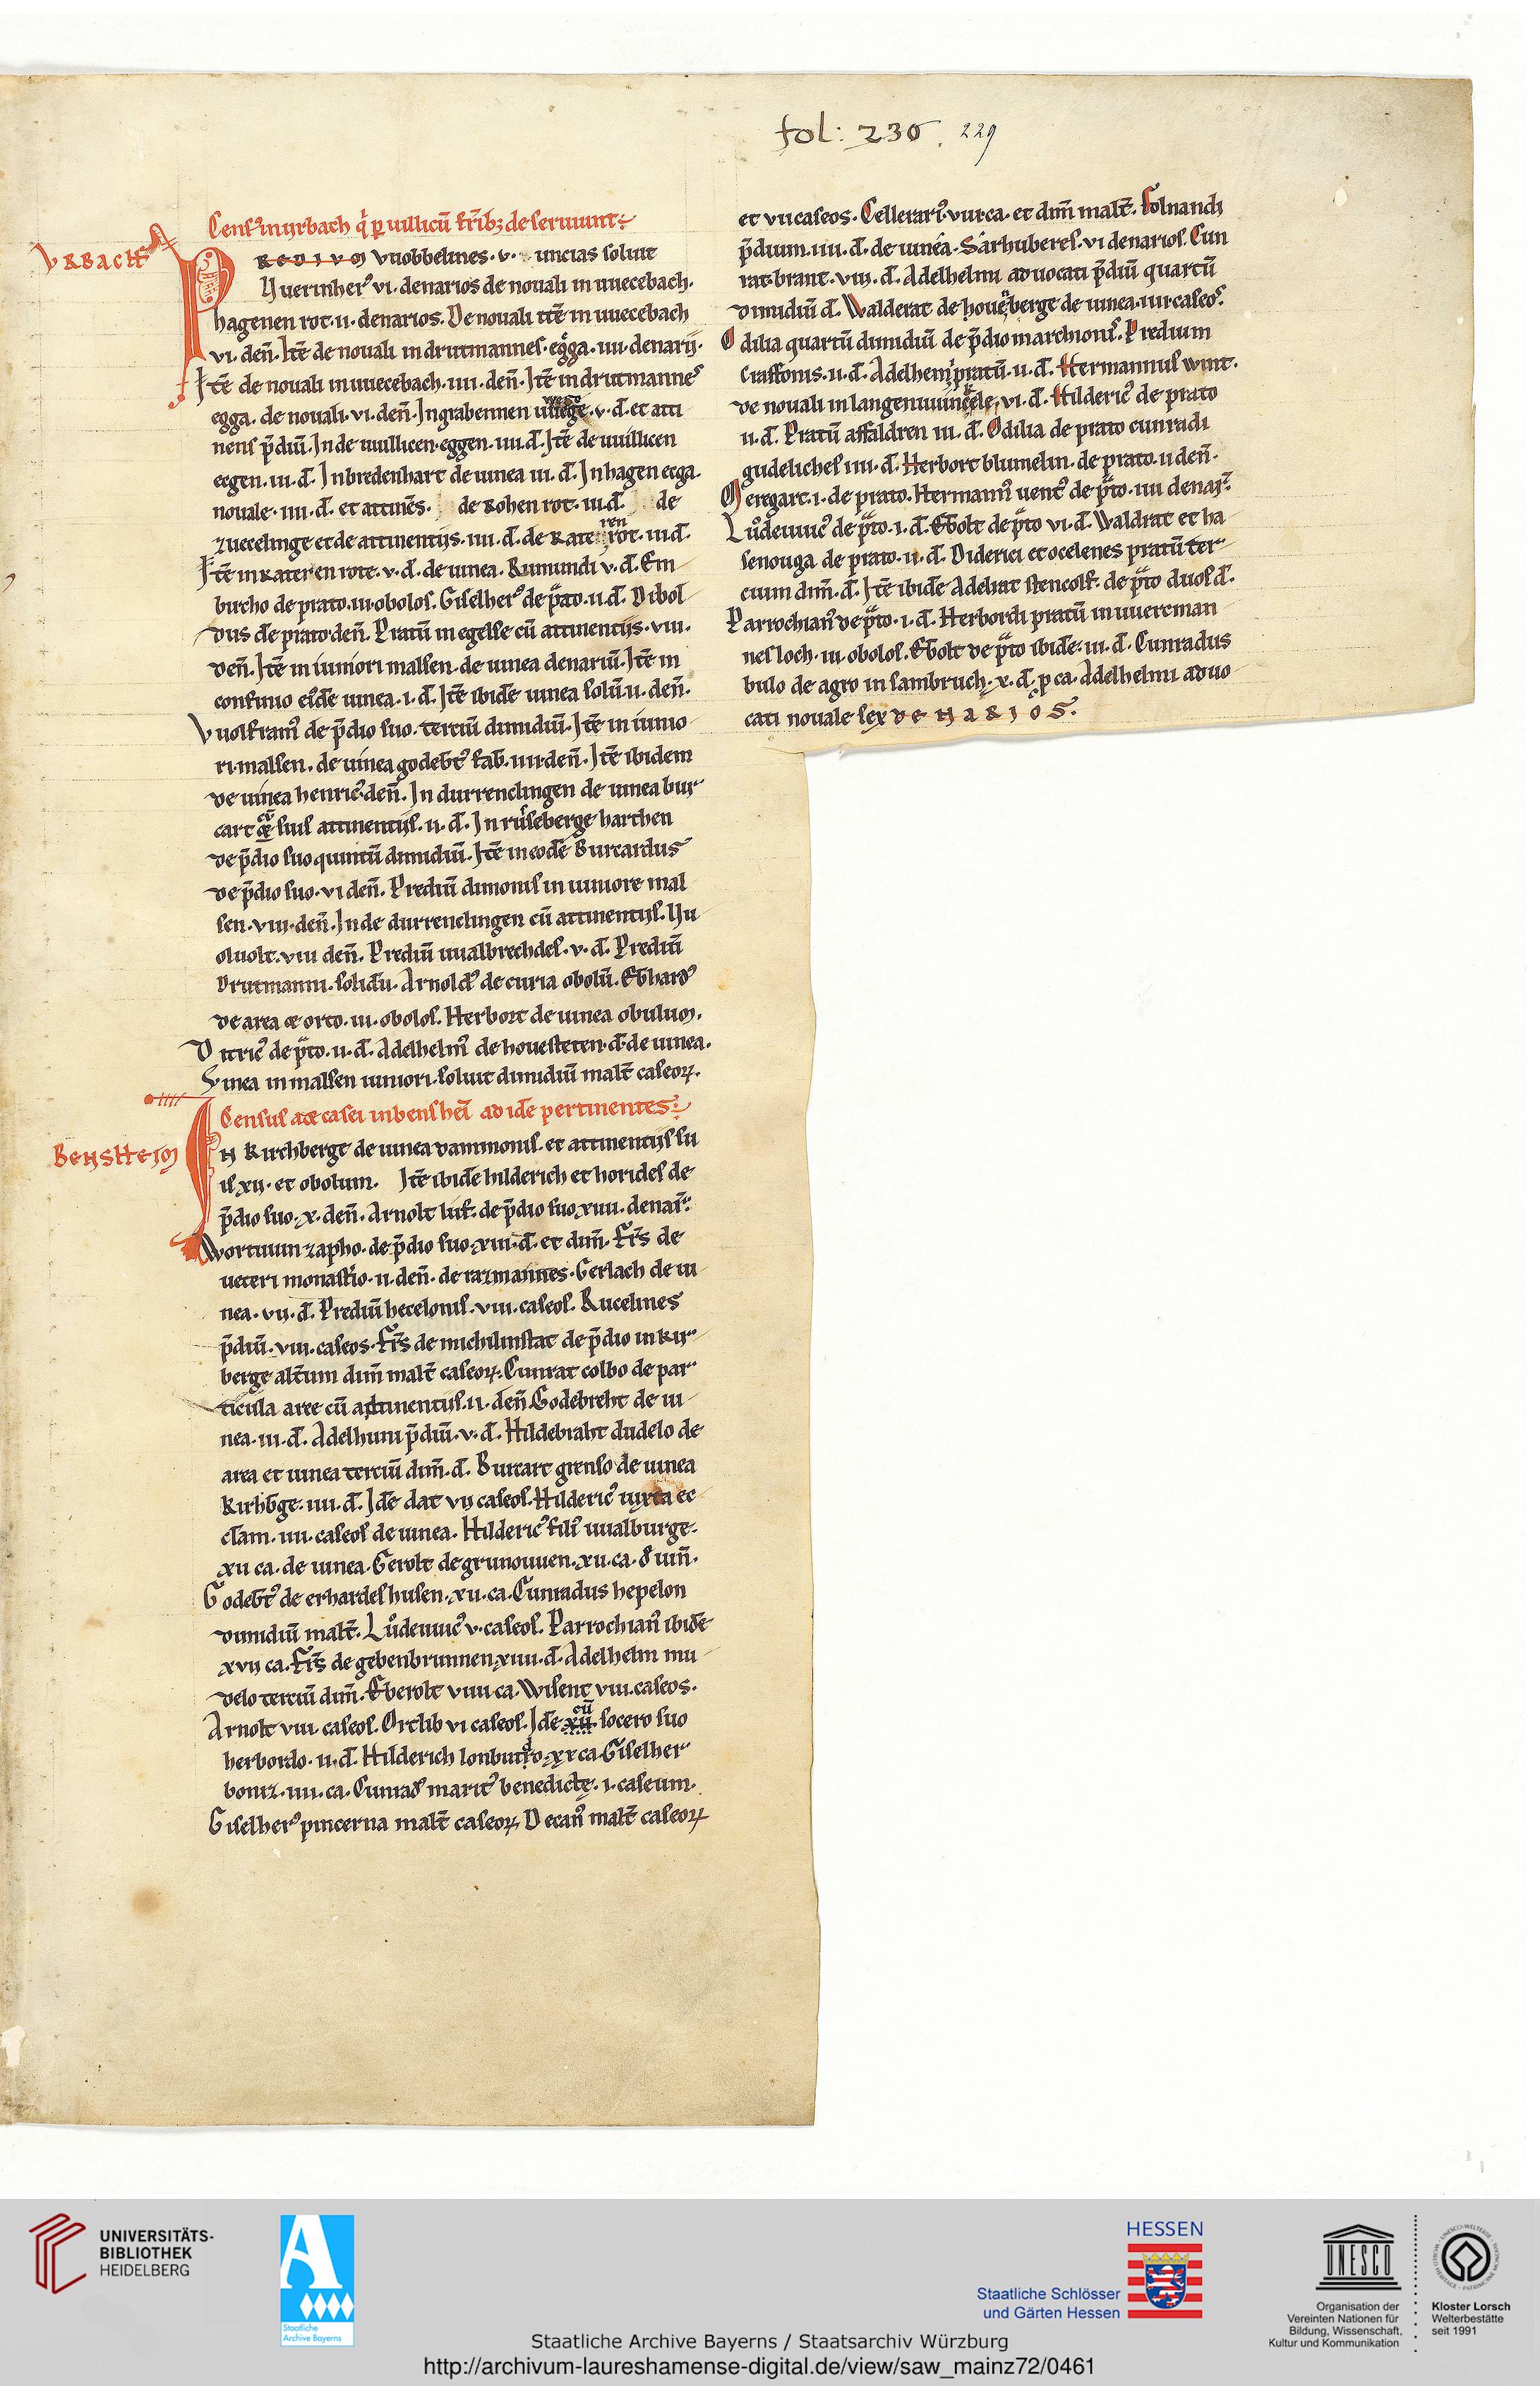 fol: 236. 229
Censꝰ in urbach q̇ ꝑ uillicū fr̄ibꝫ deseruiunt:
VRBACH
PREDIVM Vuobbelines. v. uncias soluit
Vuerinherꝰ vi. denarios de nouali in uuecebach.
hagenen rot. ii. denarios. De nouali itē in uuecebach
vi. deñ. Itē de nouali in drutmannes. egga. iiii. denarij.
Itē de nouali in uuecebach. iiii. deñ. Itē in drutmannes
egga. de nouali. vi. deñ. In grabennen v. d. et atti
nens p̄diū. In de uuillicen. eggen. iiii. d. Itē de uuillicen
ecgen. iii. d. In bredenhart de uinea iii. d. In hagen ecga.
nouale. iiii. d. et attinēs. de Rohen rot. iii. d. de
zuecelinge et de attinentijs. iiii. d. de Kateren rot. iii. d.
Itē in Kateren rote. v. d. de uinea. Rumundi v. d. Em
bricho de prato. iii. obolos. Giselherꝰ de p̄ato. ii. d. Dibol
dus de prato. deñ. Pratū in egelse cū attinentijs. viii.
deñ. Itē in iuniori malsen. de uinea denariū. Itē in
confinio eīde uinea. i. d. Itē ibidē uinea solū. ii. deñ.
Vuolframꝰ de p̄dio suo. terciū dimidiū. Itē in iunio
ri. malsen. de uinea godebt̄ꝰ fab. iiii. deñ. Itē ibidem
de uinea henricꝰ. deñ. In durrenclingen de uinea bur
cart cū suis attinentijs. ii. d. In ruseberge harthen
de p̄dio suo quintū dimidiū. Itē in eodē Burcardus
de p̄dio suo. vi deñ. Prediū dimonis in iuniore mal
sen. viii. deñ. In de durrenclingen cū attinentijs. Nu
oluolt. viii deñ. Prediū uualbrechdes. v. d. Prediū
Drutmanni. solidū. Arnoldꝰ de curia obolū. Ebhardꝰ
de area & orto. iii. obolos. Herbort de uinea obulum.
Ditricꝰ de p̄to. ii. d. Adelhelmꝰ de houesteten. d. de uinea.
Vinea in malsen iuniori. soluit dimidiū malt̄ caseoꝝ.
Census ac casei in bensheī ad idē pertinentes:
BENSHEIM
IN Kirchberge de uinea dammonis. et attinentijs su
is xii. et obolum. Itē ibidē hilderich et horides de
p̄dio suo. x. deñ. Arnolt lusc. de p̄dio suo xiiii. denar̄.
Wortuuin zapho. de p̄dio suo xiii. d. et dim̄. Fr̄s de
ueteri monastio. ii. deñ. de razmannes. Gerlach de ui
nea. vii. d. Prediū hecelonis. viii. caseos. Rucelines
p̄diū. viii. caseos. Fr̄s de michilinstat de p̄dio in kir
berge alt̄um dim̄ malt̄ caseoꝝ. Cunrat colbo de par
ticula aree cū attinentijs. ii. deñ. Godebreht de ui
nea. iii. d. Adelhuni p̄diū. v. d. Hildebraht dudelo de
area et uinea terciū dim̄. d. Burcart grenso de uinea
Kirhbge. iiii. d. Idē dat vii caseos. Hildericꝰ iuxta ec
clam. iiii. caseos de uinea. Hildericꝰ filiꝰ uualburge.
xii ca. de uinea. Gerolt de grunouuen. xii. ca. d uiñ.
Godebt̄ꝰ de erhardeshusen. xii. ca. Cunradus hepelon
dimidiū malt̄. Lůdeuuicꝰ v. caseos. Parrochianꝰ ibidē
xvii ca. Fr̄s de gebenbrunnen xiiii. d. Adelhelm mu
delo terciū dim̄. Eberolt viiii ca. Wisent viii. caseos.
Arnolt viii caseos. Ortlib vi caseos. Idē cū socero suo
herbordo. ii. d. Hilderich xx ca. Giselher
boniz. iiii. ca. Cunradꝰ maritꝰ benedictę. i. caseum.
Giselherꝰ pincerna malt̄ caseoꝝ. Decanꝰ malt̄ caseoꝝ
et vii caseos. Cellerariꝰ. vii. ca. et dim̄ malt̄. Folnandi
p̄dium. iiii. d. de uinea. Sarhuberes. vi denarios. Cun
rat. brant. viii. d. Adelhelmi aduocati p̄diū quartū
dimidiū d. Walderat de berge de uinea. iiii. caseos.
Odilia quartū dimidiū de p̄dio marchionis. Predium
craffonis. ii. d. Adelhemi pratū. ii. d. Hermannus wint.
de nouali in vi. d. Hildericꝰ de prato
ii. d. Pratū affaldren iii. d. Odilia de prato cunradi
gudeliches iiii. d. Herbort blumelin. de prato. ii deñ.
Meregart. i. de prato. Hermannꝰ uentꝰ de p̄to. iiii denar̄.
Lůdeuuicꝰ de p̄to. i. d. Ebolt de p̄to vi. d. Waldrat et ha
senouga de prato. ii. d. Diderici et ocelenes pratū ter
cium dim̄. d. Itē ibidē Adelrat stencolf. de p̄to duos d.
Parrochianꝰ de p̄to. i. d. Herbordi pratū in uuercman
nes loch. iii. obolos. Ebolt de p̄to ibidē. iii. d. Cunradus
bulo de agro in sambruch. x. d. ꝑ ca. Adelhelmi aduo
cati nouale sex DENARIOS.
UNIVERSITÄTS-
BIBLIOTHEK
HEIDELBERG
Staatliche
Archive Bayerns
HESSEN
Staatliche Schlösser
und Gärten Hessen
UNESCO
Organisation der
Vereinten Nationen für
Bildung, Wissenschaft,
Kultur und Kommunikation
Kloster Lorsch
Welterbestätte
seit 1991
Staatliche Archive Bayerns / Staatsarchiv Würzburg
http://archivum-laureshamense-digital.de/view/saw_mainz72/0461